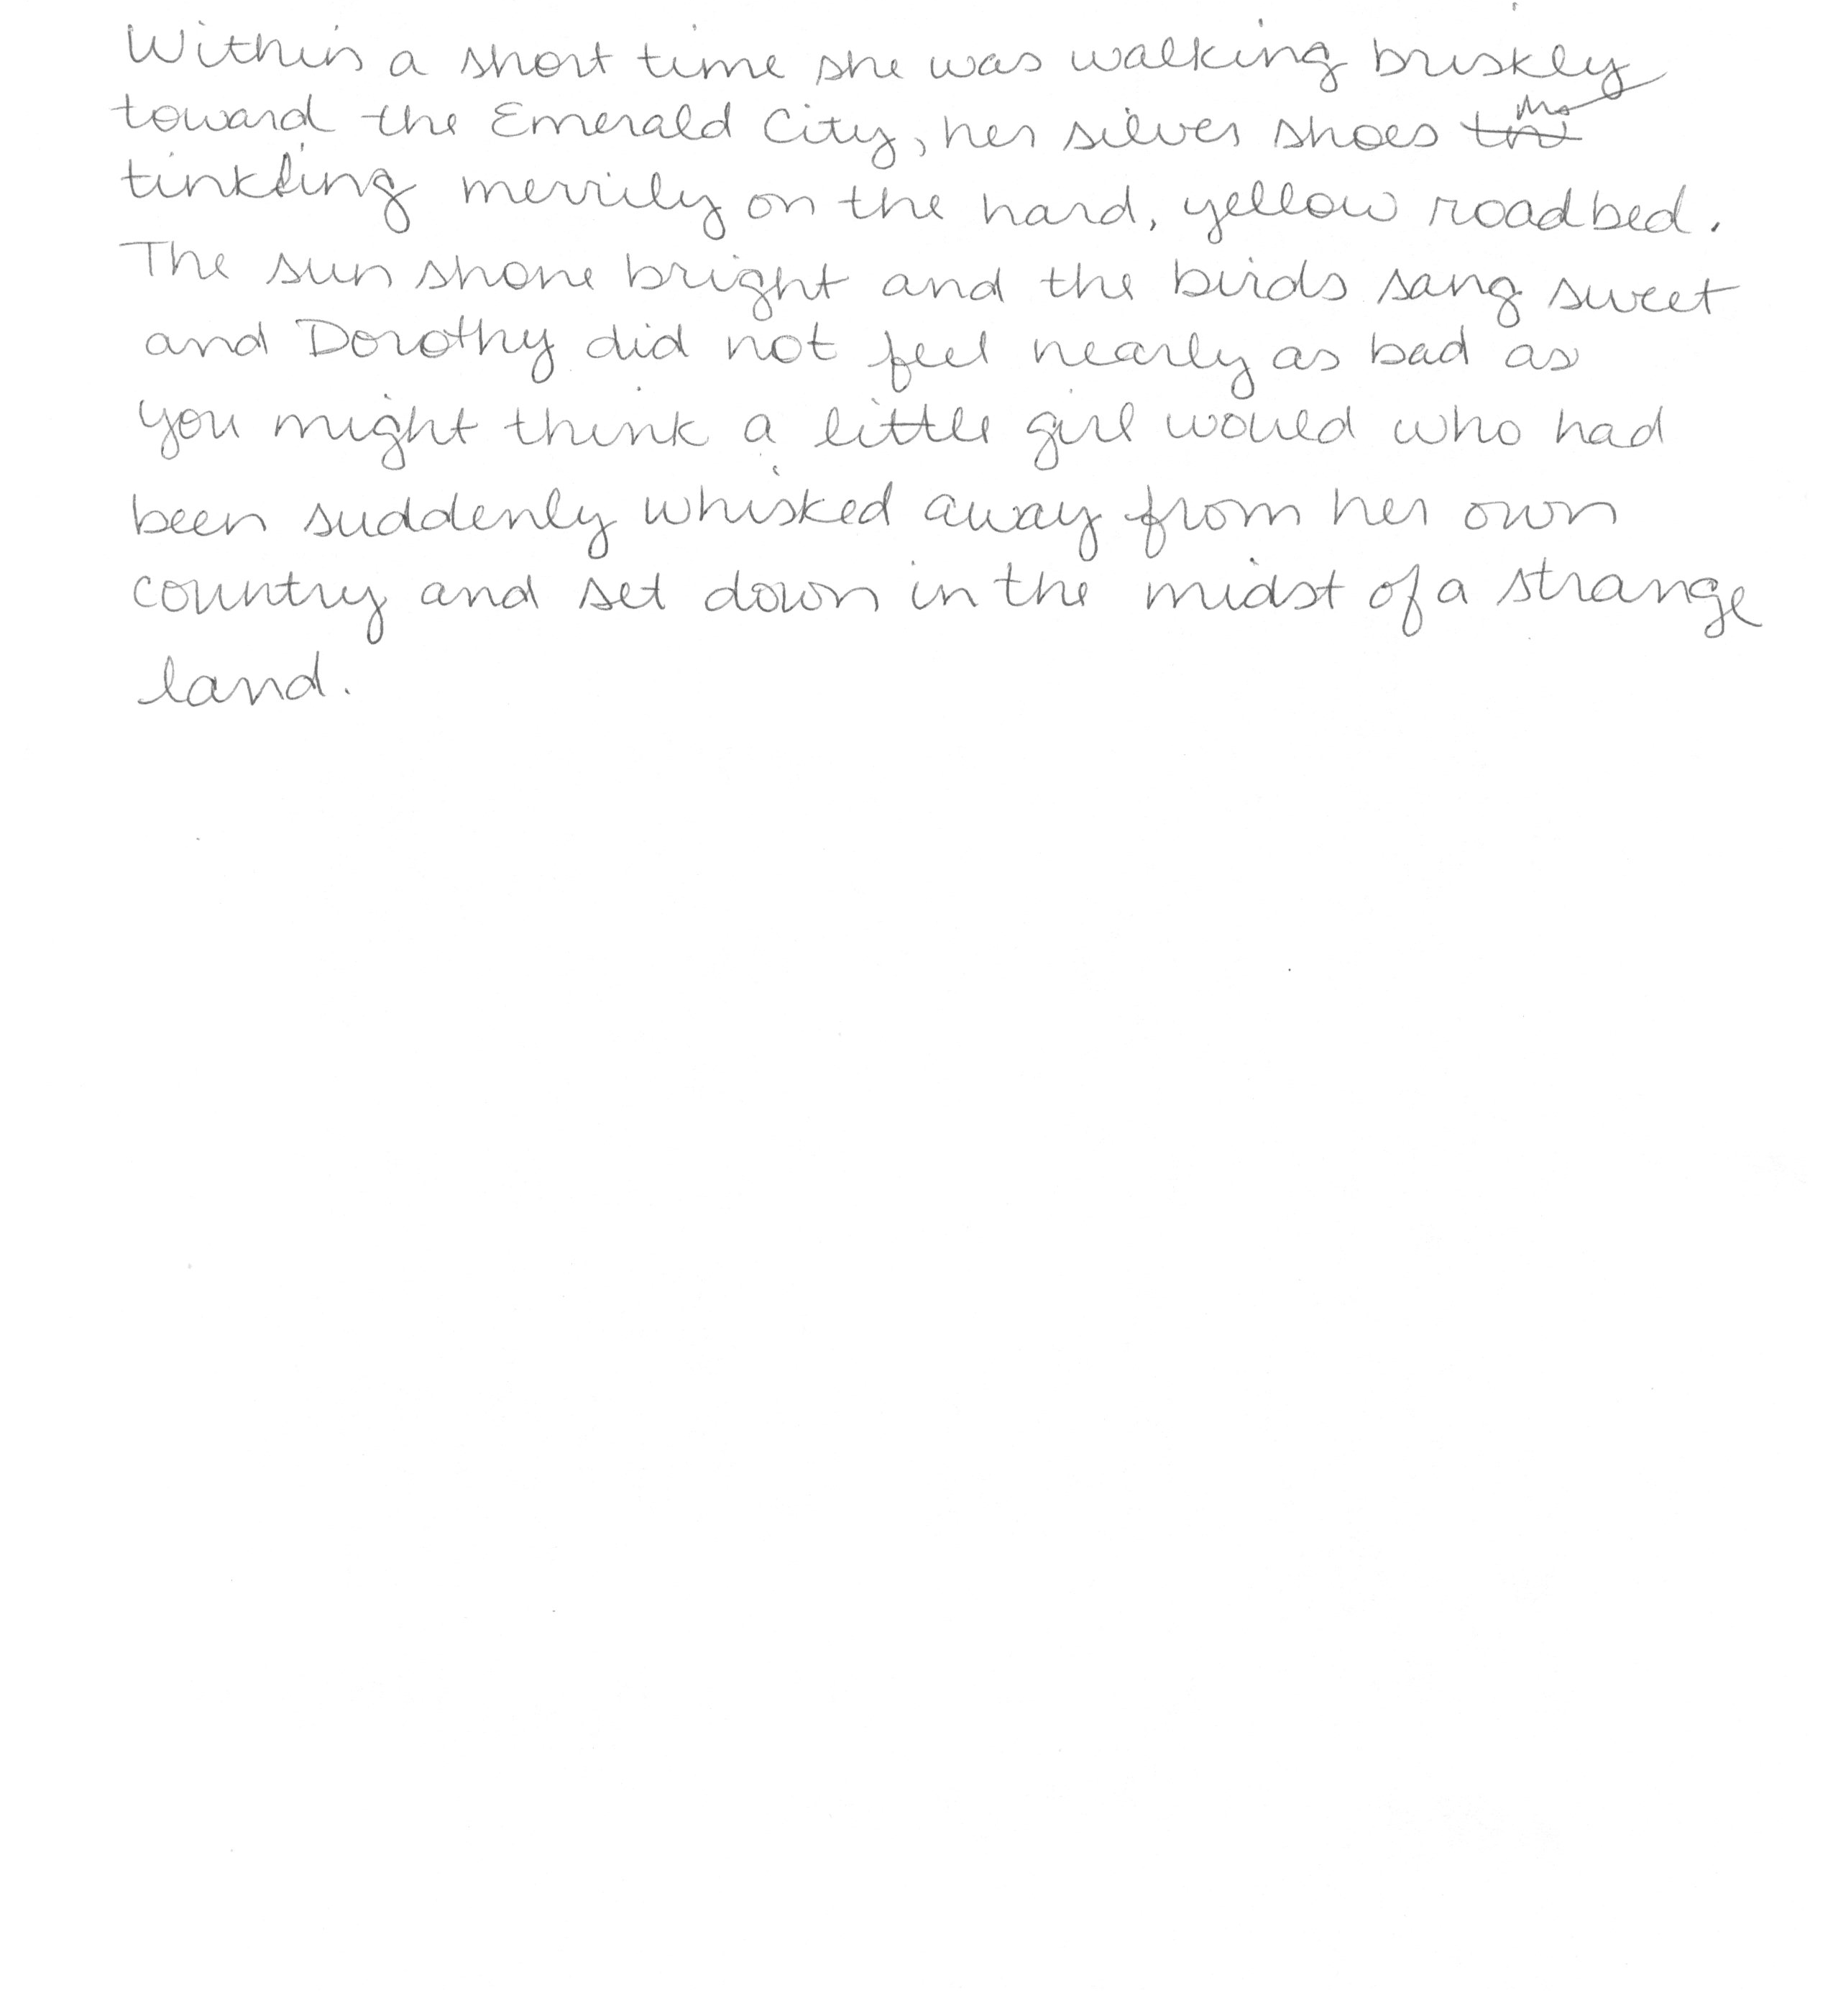 Within a short time she was walking briskly
toward the Emerald City, her silver shoes
tinkling merrily on the hard, yellow roadbed.
The sun shone bright and the birds sang sweet
and Dorothy did not feel nearly as bad as
you might think a little girl would who had
been suddenly whisked away from her own
country and set down in the midst of a strange
land.